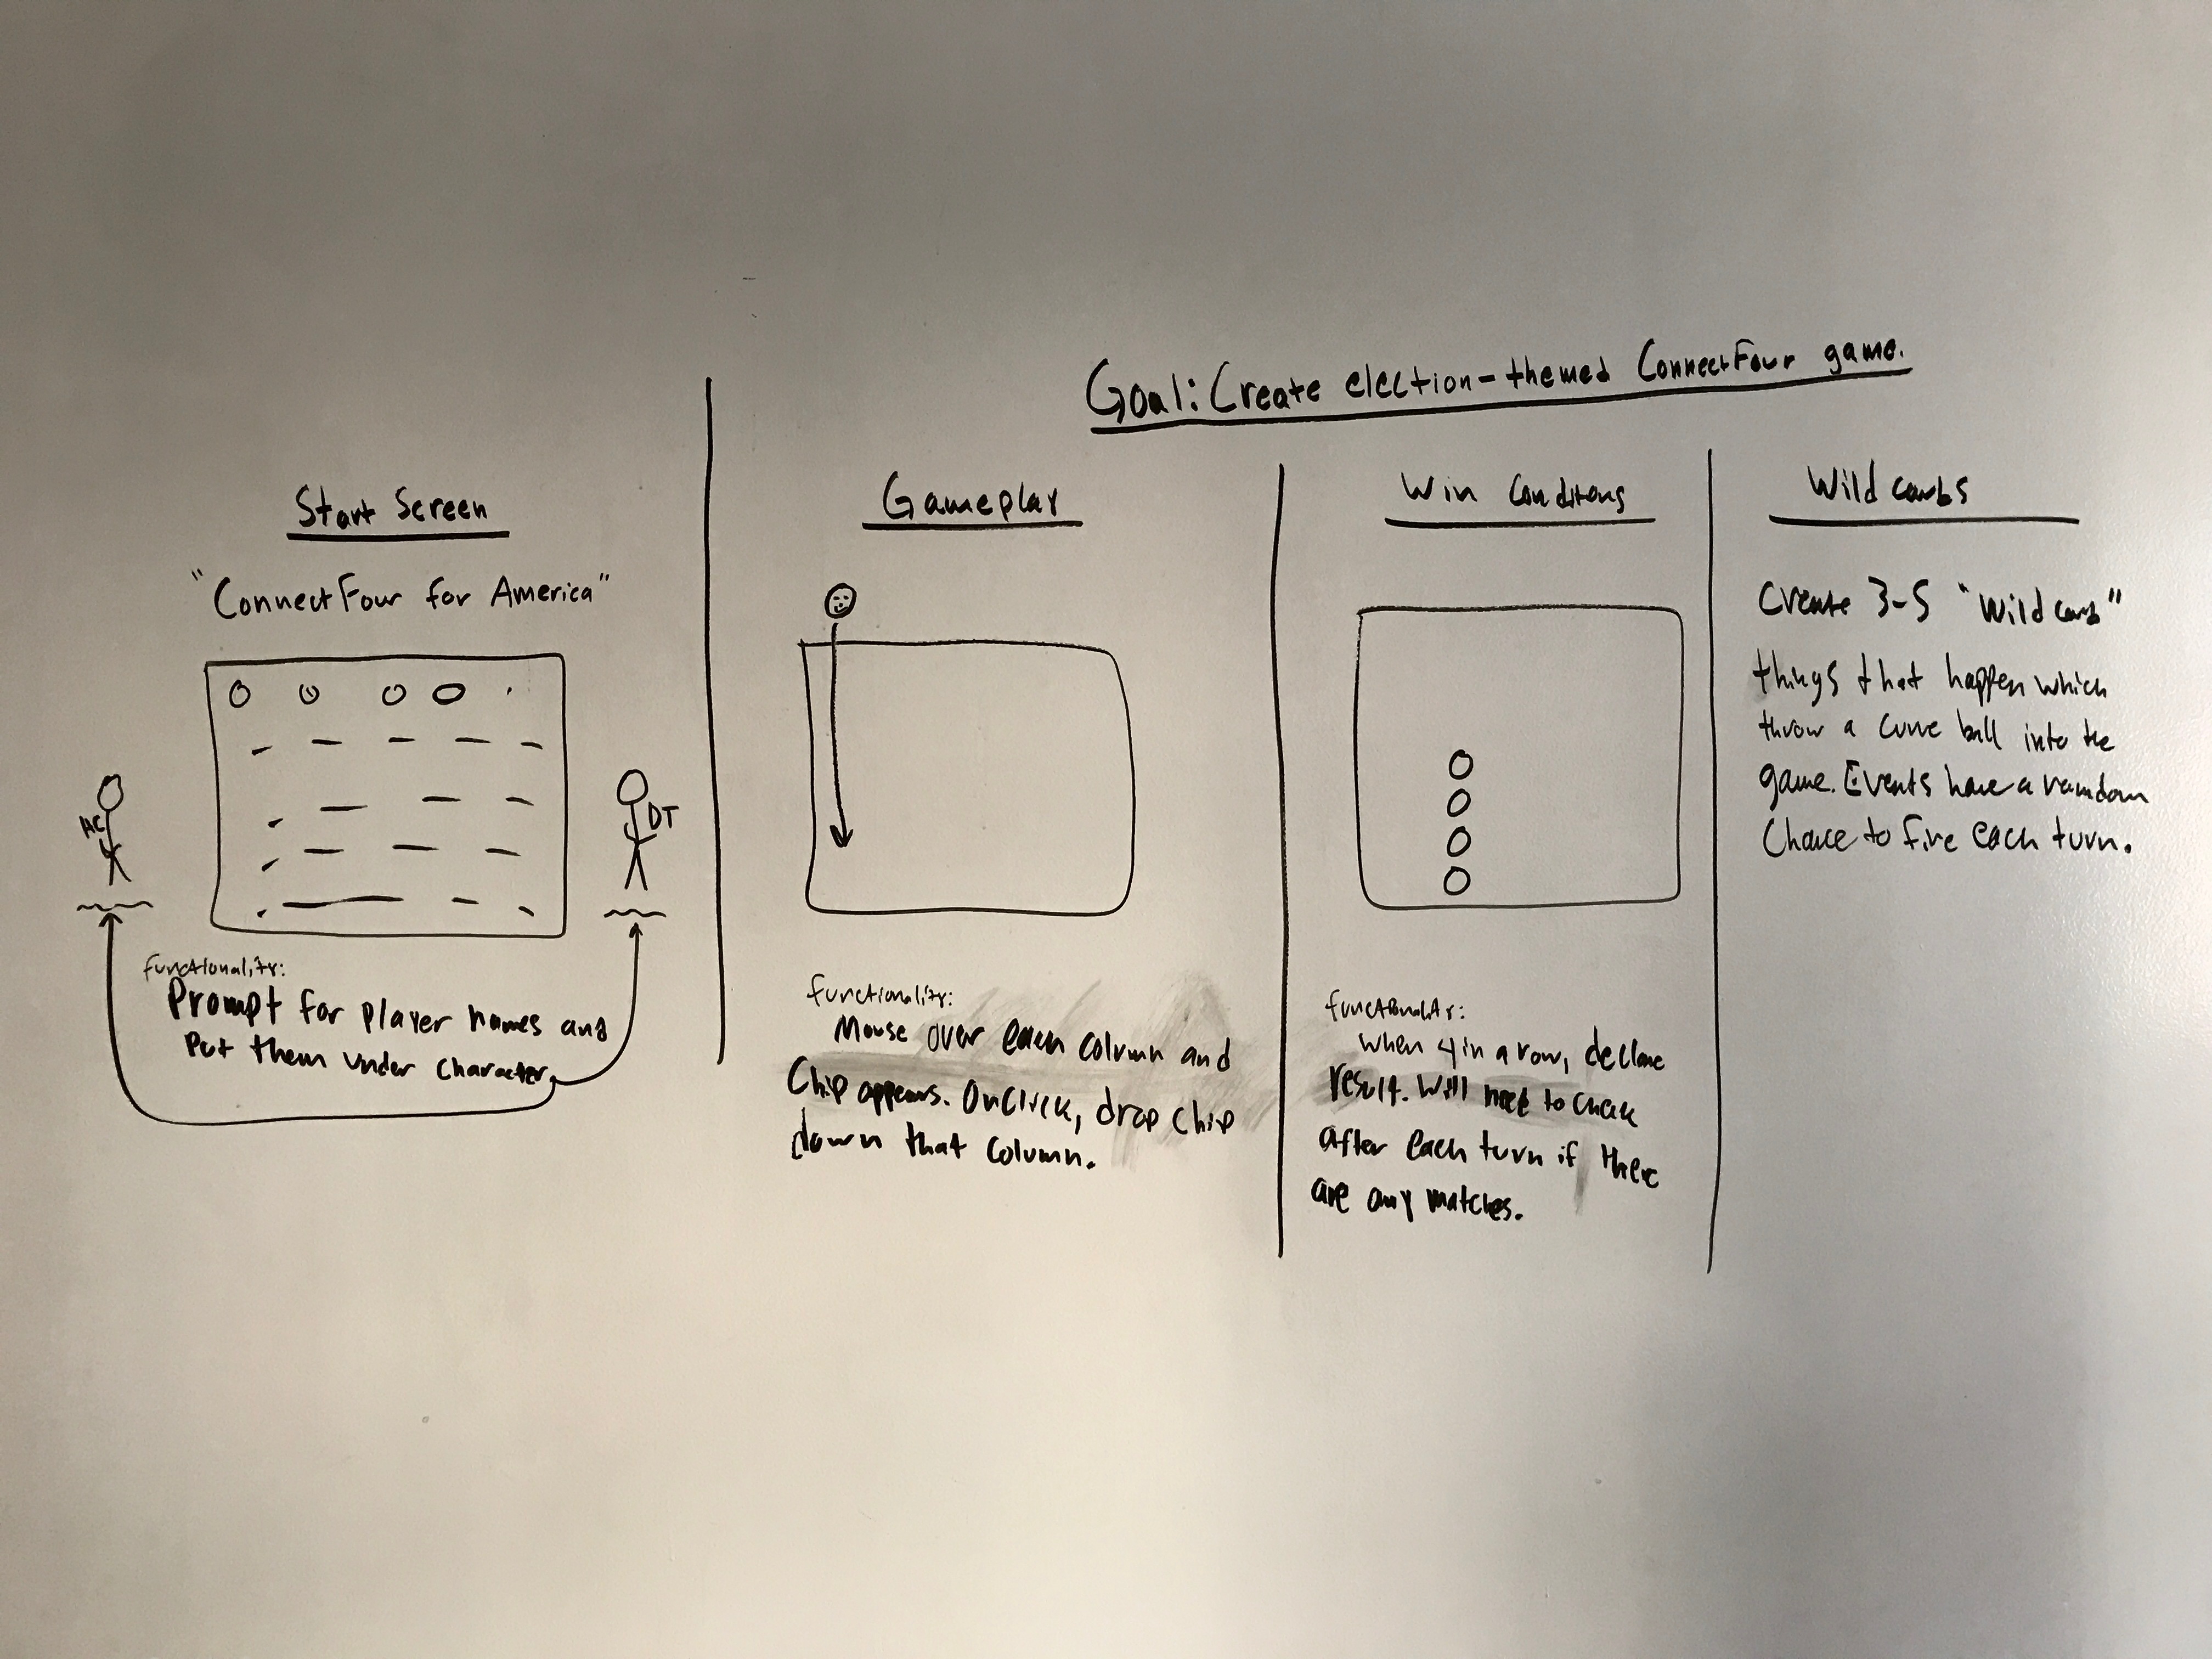 Goal: Create election-themed ConnectFour game.
Start Screen
"ConnectFour for America"
HC
DT
functionality:
Prompt for player names and
put them under character.
Gameplay
functionality:
Mouse over each column and
Chip appears. OnClick, drop chip
down that column.
Win Conditions
functionality:
When 4 in a row, declare
result. Will need to check
after each turn if there
are any matches.
Wild cards
Create 3-5 "Wild cards"
things that happen which
throw a curve ball into the
game. Events have a random
Chance to fire each turn.